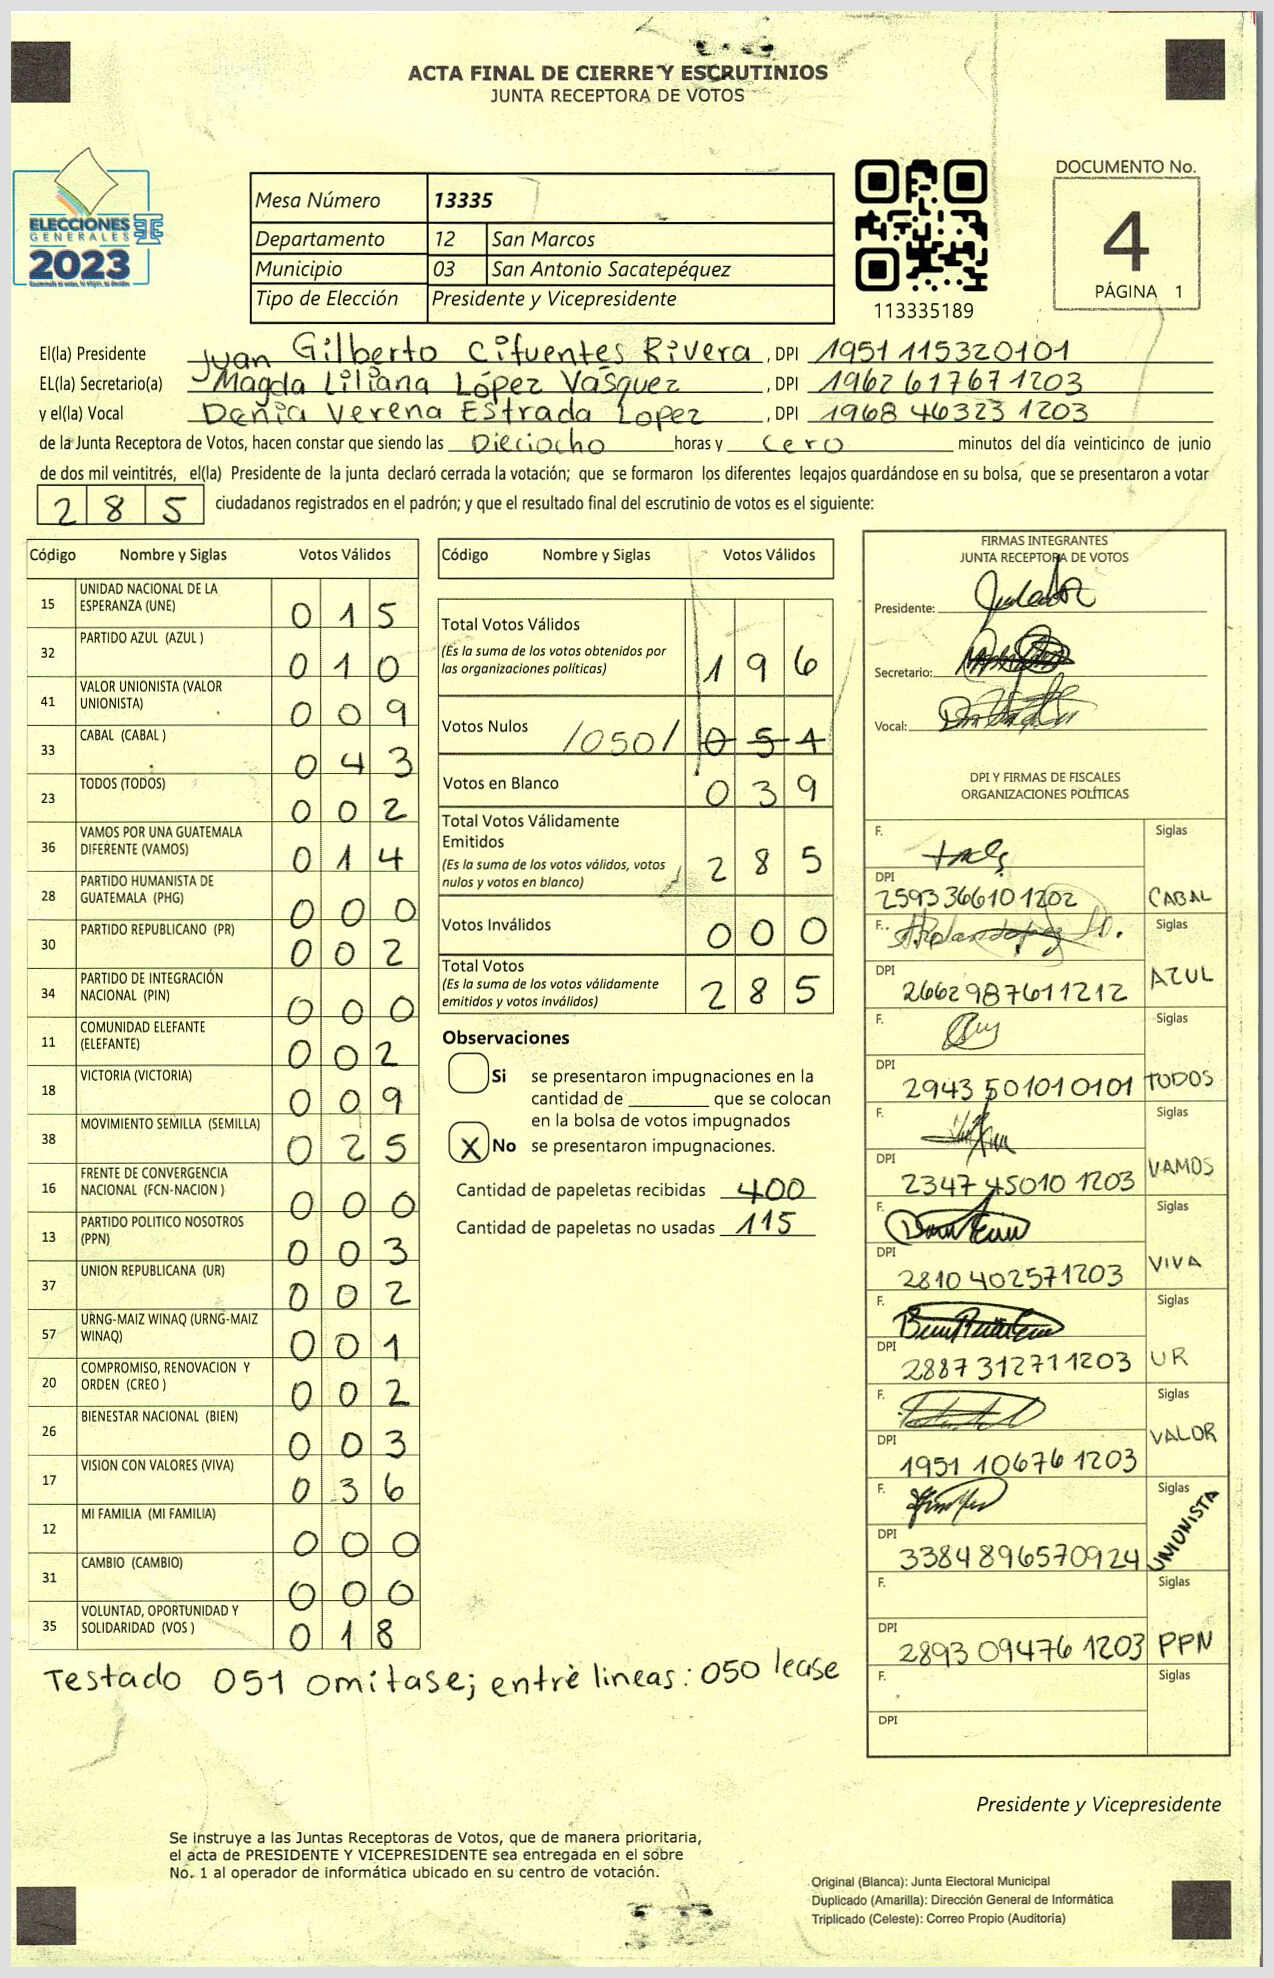 ACTA FINAL DE CIERRE Y ESCRUTINIOS
JUNTA RECEPTORA DE VOTOS
ELECCIONES
GENERALES
2023
Mesa Número 13335
Departamento 12 San Marcos
Municipio 03 San Antonio Sacatepéquez
Tipo de Elección Presidente y Vicepresidente
113335189
DOCUMENTO No.
4
PÁGINA 1
El(la) Presidente Juan Gilberto Cifuentes Rivera, DPI 1951 115320101
EL(la) Secretario(a) Magda Liliana López Vásquez, DPI 1962 61767 1203
y el(la) Vocal Denia Verena Estrada Lopez, DPI 1968 46323 1203
de la Junta Receptora de Votos, hacen constar que siendo las Dieciocho horas y cero minutos del día veinticinco de junio
de dos mil veintitrés, el(la) Presidente de la junta declaró cerrada la votación; que se formaron los diferentes legajos guardándose en su bolsa, que se presentaron a votar
285 ciudadanos registrados en el padrón; y que el resultado final del escrutinio de votos es el siguiente:
Código Nombre y Siglas Votos Válidos
15 UNIDAD NACIONAL DE LA
ESPERANZA (UNE) 015
32 PARTIDO AZUL (AZUL ) 010
41 VALOR UNIONISTA (VALOR
UNIONISTA) 009
33 CABAL (CABAL ) 043
23 TODOS (TODOS) 002
36 VAMOS POR UNA GUATEMALA
DIFERENTE (VAMOS) 014
28 PARTIDO HUMANISTA DE
GUATEMALA (PHG) 000
30 PARTIDO REPUBLICANO (PR) 002
34 PARTIDO DE INTEGRACIÓN
NACIONAL (PIN) 000
11 COMUNIDAD ELEFANTE
(ELEFANTE) 002
18 VICTORIA (VICTORIA) 009
38 MOVIMIENTO SEMILLA (SEMILLA) 025
16 FRENTE DE CONVERGENCIA
NACIONAL (FCN-NACION ) 000
13 PARTIDO POLITICO NOSOTROS
(PPN) 003
37 UNION REPUBLICANA (UR) 002
57 URNG-MAIZ WINAQ (URNG-MAIZ
WINAQ) 001
20 COMPROMISO, RENOVACION Y
ORDEN (CREO ) 002
26 BIENESTAR NACIONAL (BIEN) 003
17 VISION CON VALORES (VIVA) 036
12 MI FAMILIA (MI FAMILIA) 000
31 CAMBIO (CAMBIO) 000
35 VOLUNTAD, OPORTUNIDAD Y
SOLIDARIDAD (VOS ) 018
Testado 051 omitase; entre lineas: 050 lease
Código Nombre y Siglas Votos Válidos
Total Votos Válidos
(Es la suma de los votos obtenidos por
las organizaciones políticas) 196
Votos Nulos /050/ 051
Votos en Blanco 039
Total Votos Válidamente
Emitidos
(Es la suma de los votos válidos, votos
nulos y votos en blanco) 285
Votos Inválidos 000
Total Votos
(Es la suma de los votos válidamente
emitidos y votos inválidos) 285
Observaciones
Si se presentaron impugnaciones en la
cantidad de ________ que se colocan
en la bolsa de votos impugnados
X No se presentaron impugnaciones.
Cantidad de papeletas recibidas 400
Cantidad de papeletas no usadas 115
FIRMAS INTEGRANTES
JUNTA RECEPTORA DE VOTOS
Presidente:
Secretario:
Vocal:
DPI Y FIRMAS DE FISCALES
ORGANIZACIONES POLÍTICAS
F. Siglas
DPI
2593 36610 1202 CABAL
F. Siglas
DPI
2662987611212 AZUL
F. Siglas
DPI
2943 501010101 TODOS
F. Siglas
DPI
2347 45010 1203 VAMOS
F. Siglas
DPI
2810 402571203 VIVA
F. Siglas
DPI
2887 312711203 UR
F. Siglas
DPI
1951 10676 1203 VALOR
F. Siglas
DPI
3384 896570924 UNIONISTA
F. Siglas
DPI
2893 09476 1203 PPN
F. Siglas
DPI
Presidente y Vicepresidente
Se instruye a las Juntas Receptoras de Votos, que de manera prioritaria,
el acta de PRESIDENTE Y VICEPRESIDENTE sea entregada en el sobre
No. 1 al operador de informática ubicado en su centro de votación.
Original (Blanca): Junta Electoral Municipal
Duplicado (Amarilla): Dirección General de Informática
Triplicado (Celeste): Correo Propio (Auditoría)